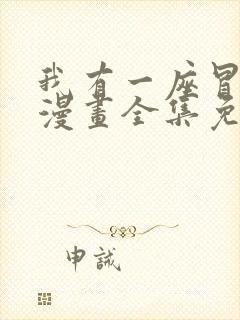 我有一座冒
漫畫全集免
申誠